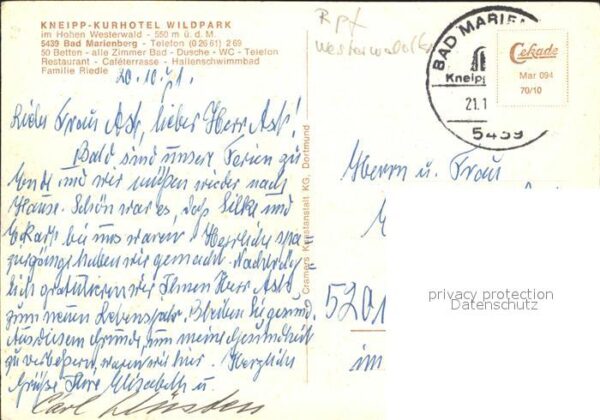 KNEIPP-KURHOTEL WILDPARK
im Hohen Westerwald - 550 m ü. d. M.
5439 Bad Marienberg - Telefon (0 26 61) 2 69
50 Betten - alle Zimmer Bad - Dusche - WC - Telefon
Restaurant - Caféterrasse - Hallenschwimmbad
Familie Riedle
20.10.71.
Liebe Frau Ast, lieber Herr Ast!
Bald sind unsere Ferien zu
Ende und wir müßen wieder nach
Hause. Schön war es, daß Silke und
bei uns waren. Herrliche Spa-
ziergänge haben wir gemacht. Nachträg-
lich gratulieren wir Ihnen Herr Ast
zum neuen Lebensjahr. Bleiben Sie gesund.
Aus diesem Grunde, um meine Gesundheit
zu verbessern, waren wir hier. Herzliche
Grüße Ihre Elisabeth u.
Carl
Cramers Kunstanstalt KG, Dortmund
Rpf
BAD MARIEN
Kneipp
21.1
5439
Cekade
Mar 094
70/10
Herrn u. Frau
5201
im
privacy protection
Datenschutz